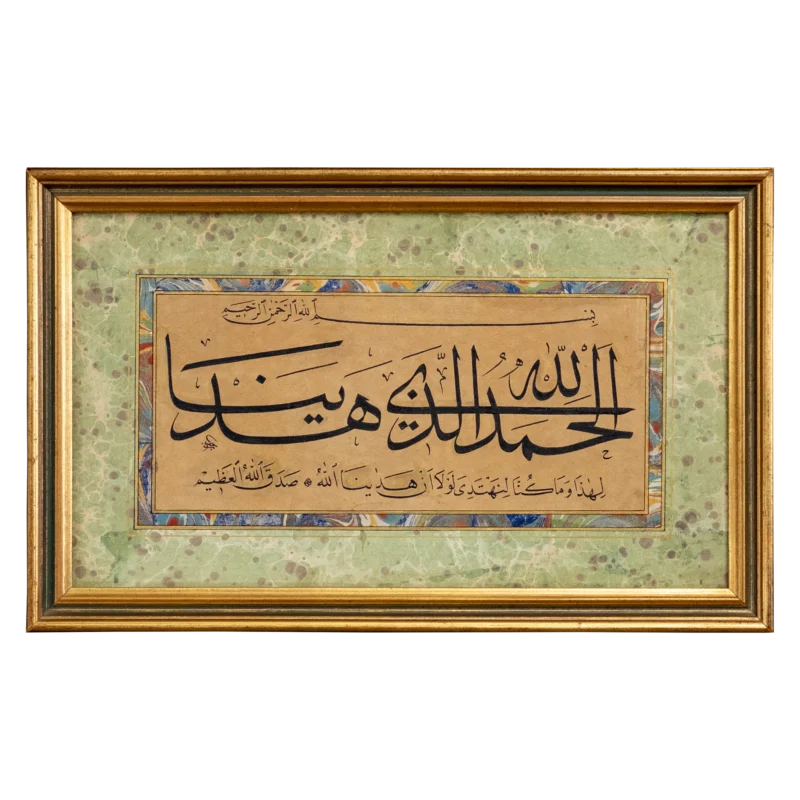 بِسْمِ اللهِ الرَّحْمٰنِ الرَّحِيمِ
الْحَمْدُ لِلّٰهِ الَّذِي هَدٰينَا
لِهٰذَا وَمَا كُنَّا لِنَهْتَدِيَ لَوْلَا اَنْ هَدٰينَا اللهُ ۞ صَدَقَ اللهُ الْعَظِيمُ